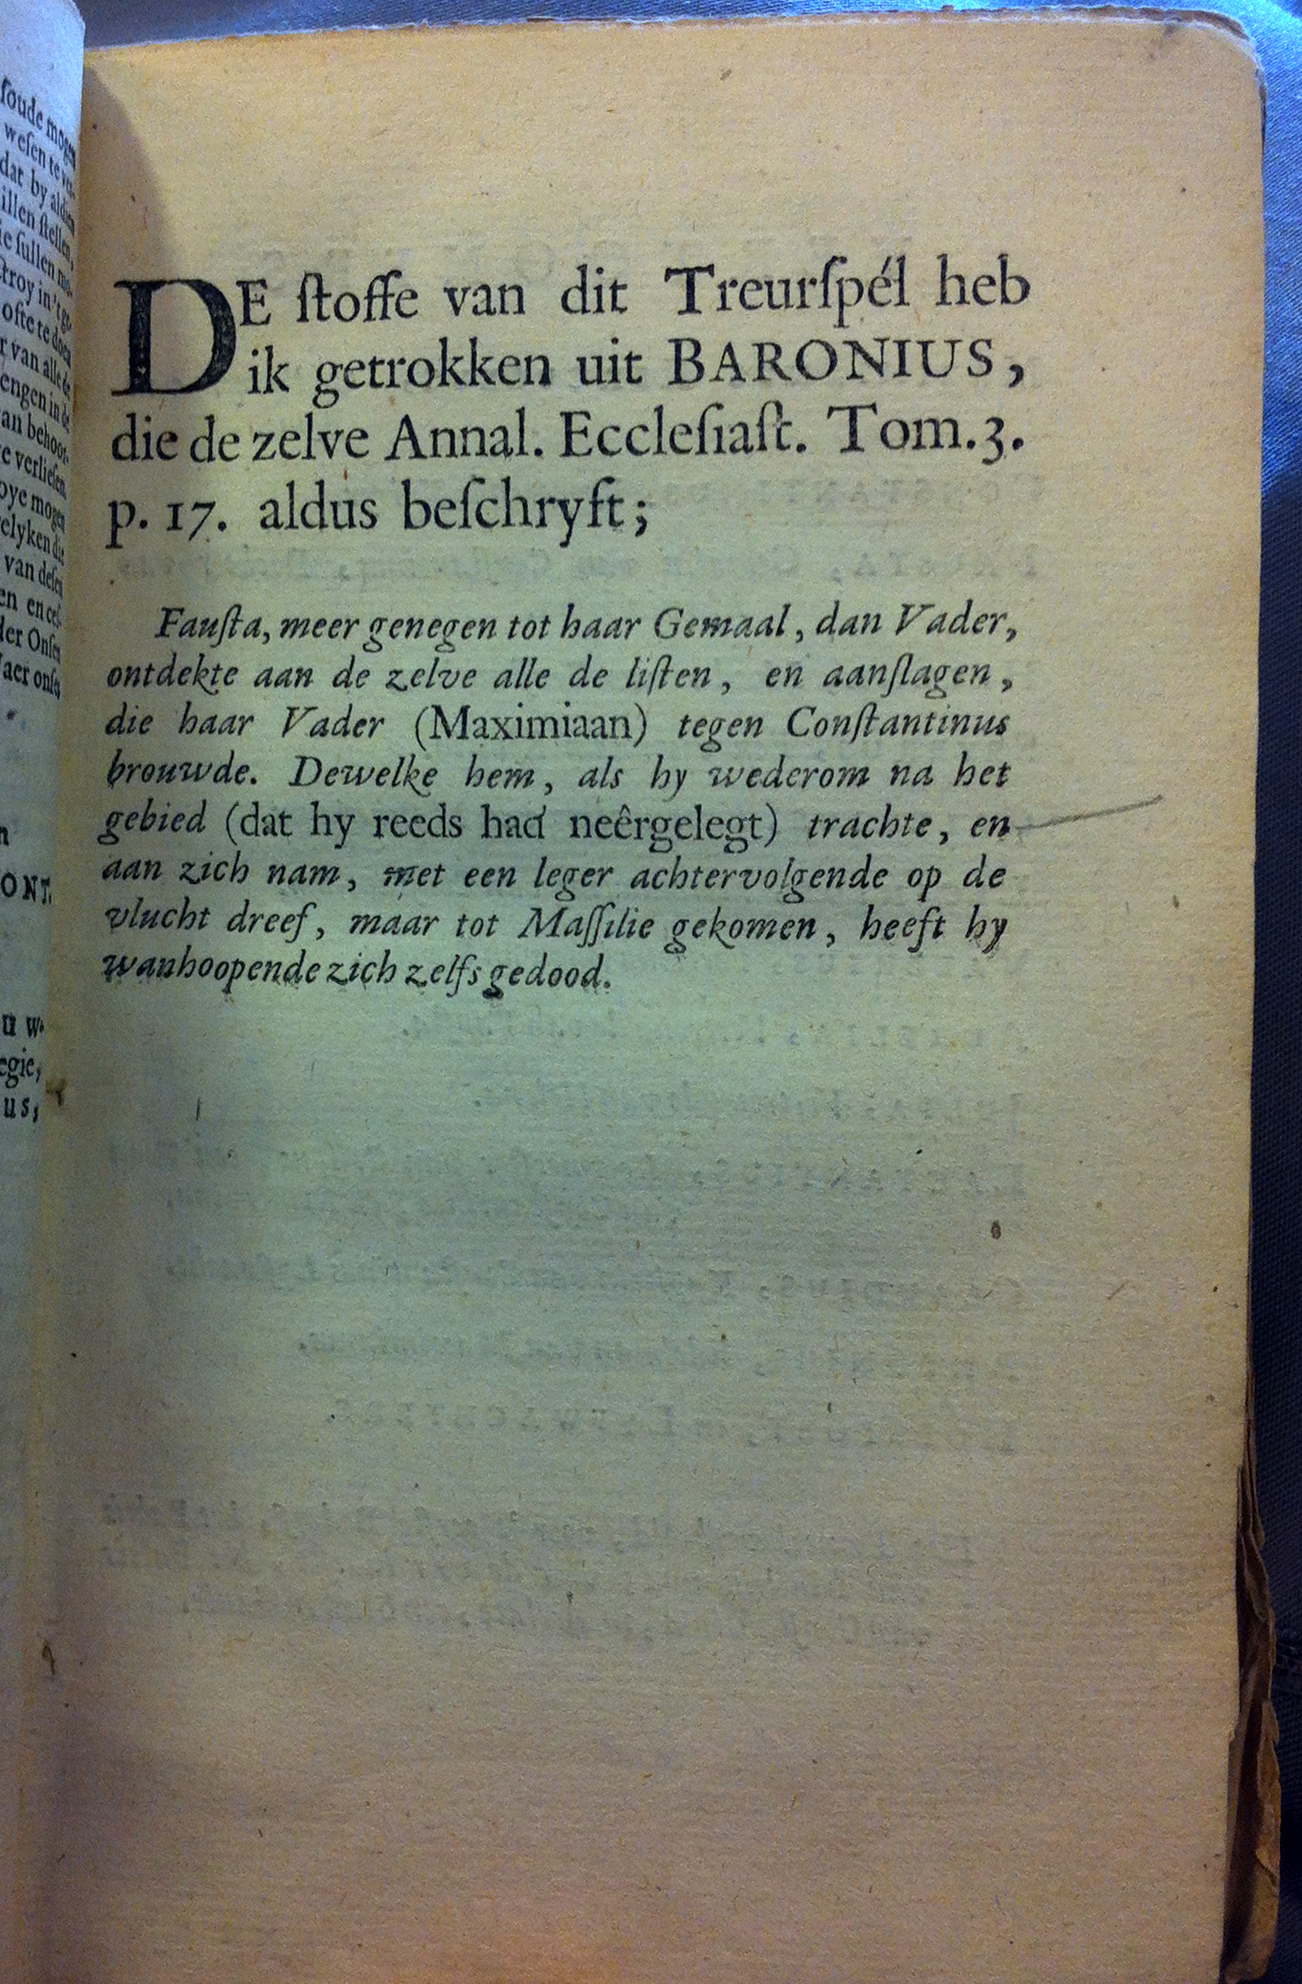 soude mogen
wesen te
dat by aldien
illen stellen,
ie sullen
ctroy in 't
ofte te doen
r van alle de
engen in de
an behoor-
e verliesen
oye mogen
elyken die
van desen
en en
der Onsen
aer onsen
n
ONT.
u w
egie,
us,
DE ſtoffe van dit Treurſpél heb
ik getrokken uit BARONIUS,
die de zelve Annal. Eccleſiaſt. Tom. 3.
p. 17. aldus beſchryft;
Fauſta, meer genegen tot haar Gemaal, dan Vader,
ontdekte aan de zelve alle de liſten, en aanſlagen,
die haar Vader (Maximiaan) tegen Conſtantinus
brouwde. Dewelke hem, als hy wederom na het
gebied (dat hy reeds had neêrgelegt) trachte, en
aan zich nam, met een leger achtervolgende op de
vlucht dreef, maar tot Maſſilie gekomen, heeft hy
wanhoopende zich zelfs gedood.